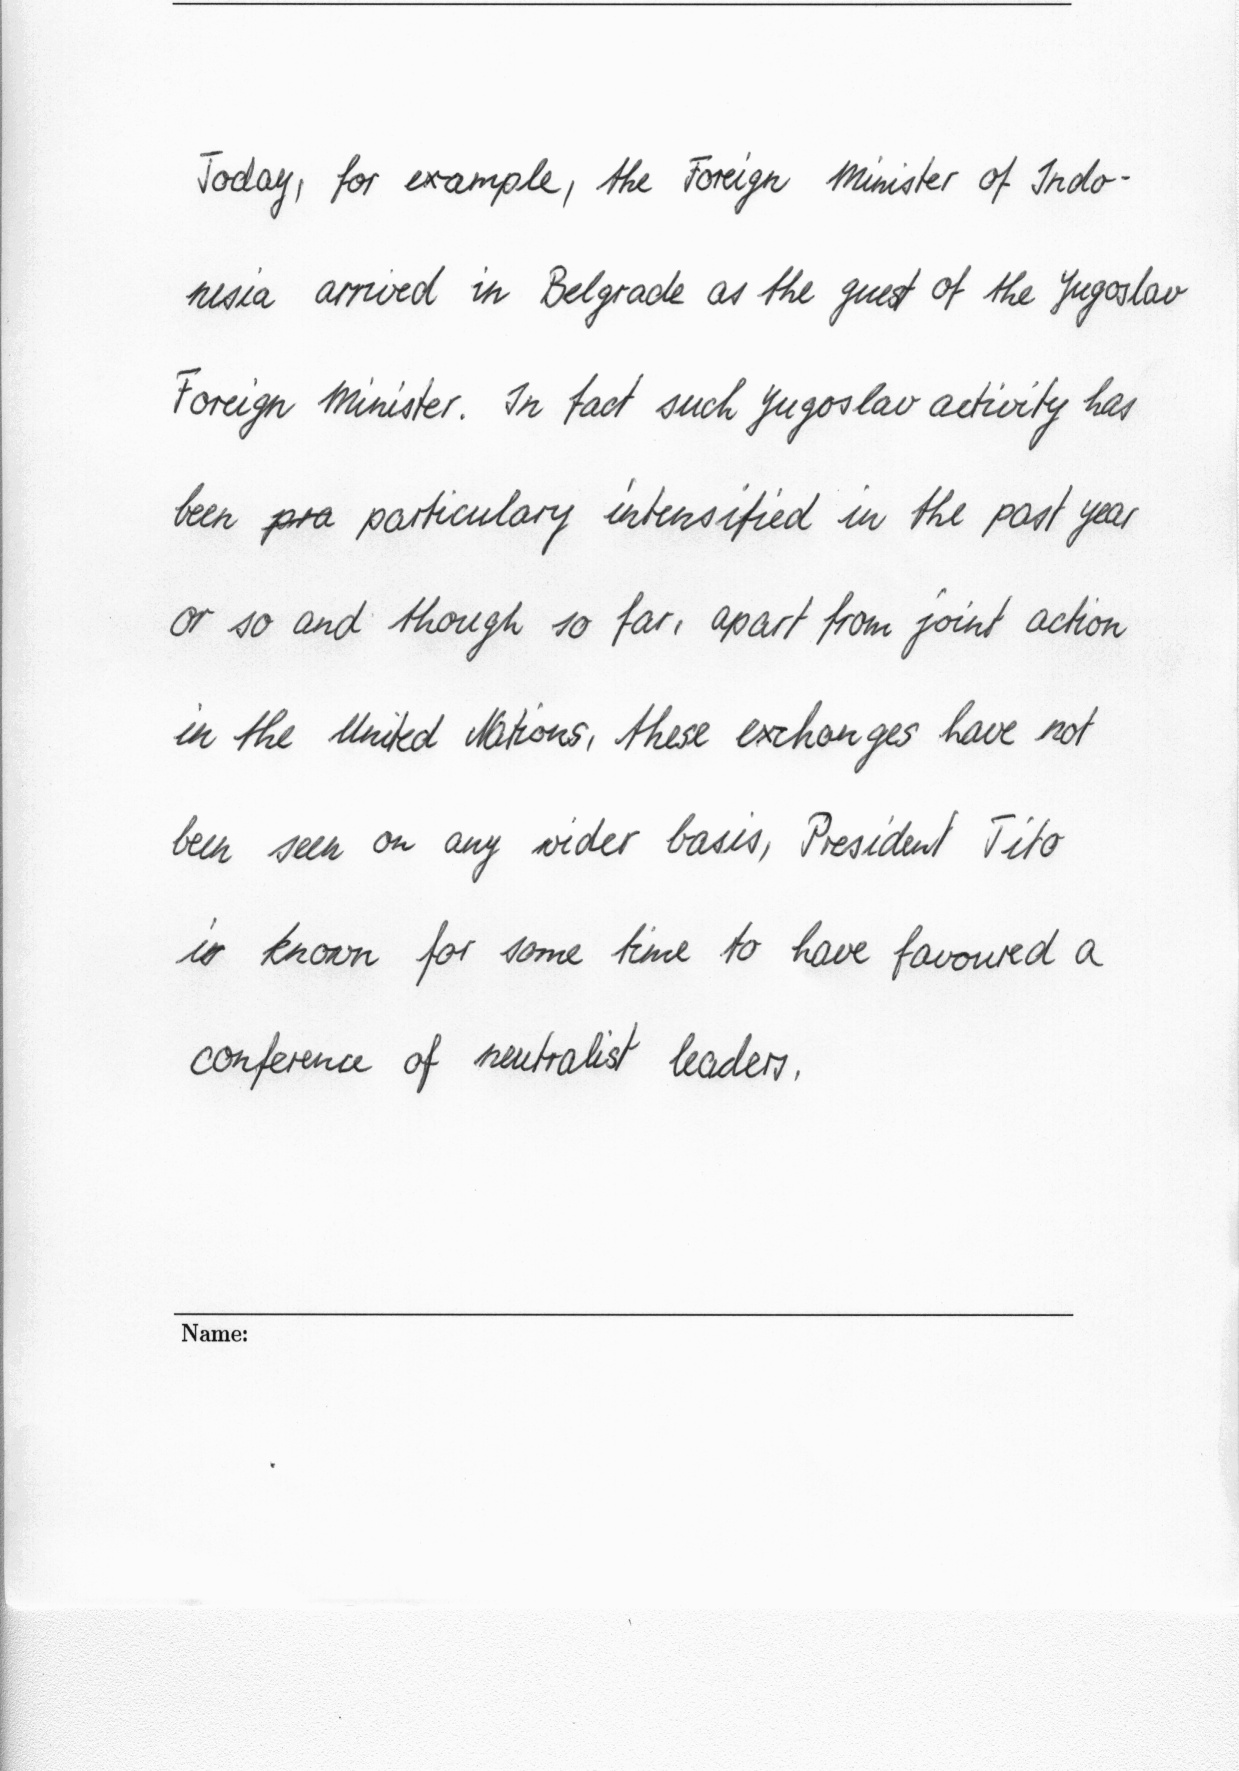 Today, for example, the Foreign Minister of Indo-
nesia arrived in Belgrade as the guest of the Yugoslav
Foreign Minister. In fact such Yugoslav activity has
been pra particulary intensified in the past year
or so and though so far, apart from joint action
in the United Nations, these exchanges have not
been seen on any wider basis, President Tito
is known for some time to have favoured a
conference of neutralist leaders.
Name: